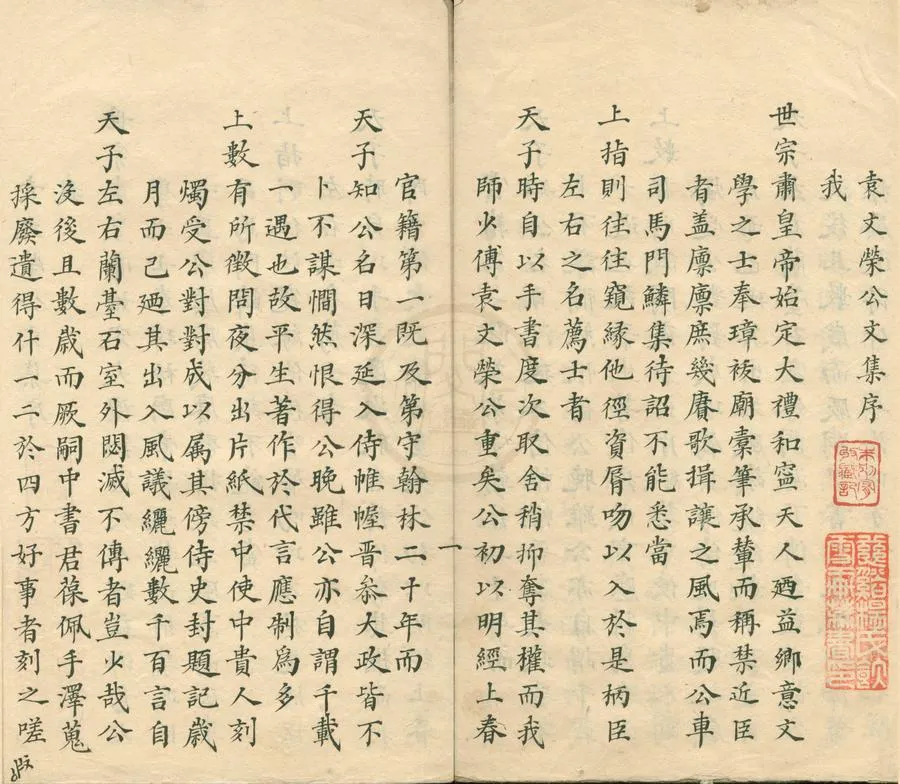 袁文榮公文集序
我
世宗肅皇帝始定大禮和寧天人廼益鄉意文
學之士奉璋祓廟櫜筆承輦而稱禁近臣
者蓋廩廩庶幾賡歌揖讓之風焉而公車
司馬門鱗集待詔不能悉當
上指則往往窺緣他徑資脣吻以入於是柄臣
左右之名薦士者
天子時自以手書度次取舍稍抑奪其權而我
師少傅袁文榮公重矣公初以明經上春
一
官籍第一既及第守翰林二十年而
天子知公名日深延入侍帷幄晉叅大政皆不
卜不謀憪然恨得公晚雖公亦自謂千載
一遇也故平生著作於代言應制爲多
上數有所徵問夜分出片紙禁中使中貴人刻
燭受公對對成以属其傍侍史封題記歲
月而已廼其出入風議纚纚數千百言自
天子左右蘭臺石室外閟滅不傳者豈少哉公
沒後且數歲而厥嗣中書君葆佩手澤蒐
採廢遺得什一二於四方好事者刻之嗟